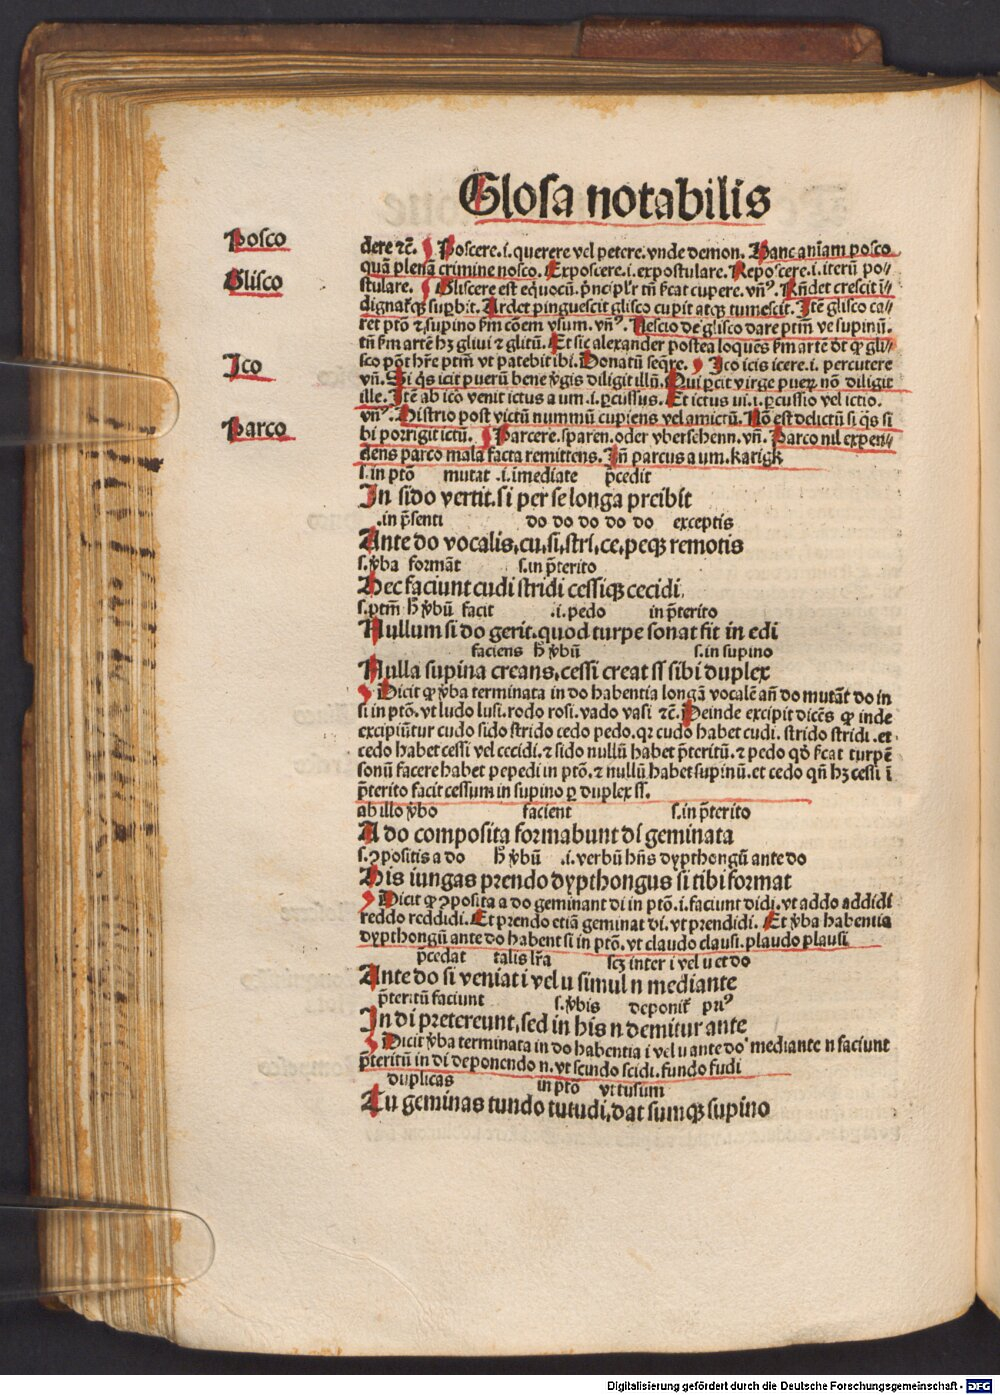 Glosa notabilis
Posco
Glisco
Ico
Parco
dere ⁊c̃. Poscere .i. querere vel petere. vnde demon. Hanc aīam posco
quā plenā crimine nosco. Exposcere .i. expostulare. Reposcere .i. iterū po-
stulare. Gliscere est equocū. p̄ncipl'r tñ s̄cat cupere. vñꝰ. Rñdet crescit ī-
dignat᷑qꝫ suꝑbit. Ardet pinguescit glisco cupit atqꝫ tumescit. Itē glisco ca-
ret ptõ ⁊ supino s̄m cōem vsum. vñꝰ. Nescio de glisco dare ptm̄ ve supinū.
tñ s̄m artē hꝫ gliui ⁊ glitū. Et sic alexander postea loquēs s̄m artē d̄t qꝙ gli-
sco pōt hr̄e ptm̄ vt patebit ibi. Donatū seq̄re. Ico icis icere .i. percutere
vñ. Si q̄s icit puerū bene v̓gis diligit illū. Qui ꝑcit virge pueꝝ nō diligit
ille. Itē ab ico venit ictus a um .i. ꝑcussus. Et ictus ui .i. ꝑcussio vel ictio.
vñꝰ. Histrio post victū nummū cupiens vel amictū. Nō est delictū si q̄s si
bi porrigit ictū. Parcere. sparen. oder vbersehenn. vñ. Parco nil expen-
dens parco mala facta remittens. Iñ parcus a um. karigk
s. in ptõ mutat .i. īmediate p̄cedit
In sido vertit. si per se longa preibit
.in p̄senti do do do do do exceptis
Ante do vocalis, cu, si, stri, ce, peqꝫ remotis
s. v̓ba formāt s. in p̄terito
Hec faciunt cudi stridi cessiqꝫ cecidi.
s. ptm̄ h̄ v̓bū facit .i. pedo in p̄terito
Nullum sido gerit. quod turpe sonat fit in edi
faciens h̄ v̓bū s. in supino
Nulla supina creans, cessi creat ss sibi duplex
Dicit qꝙ v̓ba terminata in do habentia longā vocalē añ do mutāt do in
si in ptõ. vt ludo lusi. rodo rosi. vado vasi ⁊c̃. Deinde excipit dicēs qꝙ inde
excipiūtur cudo sido strido cedo pedo. qꝛ cudo habet cudi. strido stridi. et
cedo habet cessi vel cecidi. ⁊ sido nullū habet p̄teritū. ⁊ pedo qđ s̄cat turpē
sonū facere habet pepedi in ptõ. ⁊ nullū habet supinū. et cedo qñ hꝫ cessi ī
p̄terito facit cessum in supino ꝑ duplex ss.
ab illo v̓bo facient s. in p̄terito
A do composita formabunt di geminata
s. ꝯpositis a do h̄ v̓bū .i. verbū hñs dypthongū ante do
His iungas prendo dypthongus si tibi format
Dicit qꝙ ꝯposita a do geminant di in ptõ .i. faciunt didi. vt addo addidi
reddo reddidi. Et prendo etiā geminat di. vt prendidi. Et v̓ba habentia
dypthongū ante do habent si in ptõ. vt claudo clausi. plaudo plausi
p̄cedat talis lr̄a scꝫ inter i vel u et do
Ante do si veniat i vel u simul n mediante
p̄teritū faciunt s. v̓bis deponit᷑ priꝰ
In di pretereunt, sed in his n demitur ante
Dicit v̓ba terminata in do habentia i vel u ante do mediante n faciunt
p̄teritū in di deponendo n. vt scindo scidi. fundo fudi
duplicas in ptõ vt tusum
Tu geminas tundo tutudi, dat sumqꝫ supino
Digitalisierung gefördert durch die Deutsche Forschungsgemeinschaft - DFG